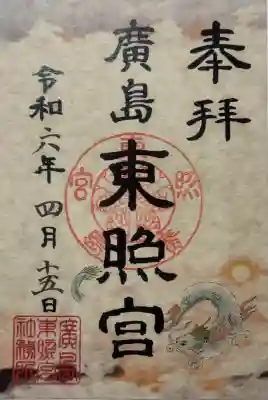 奉拝
廣島東照宮
令和六年 四月十五日
廣島
東照宮
社務所